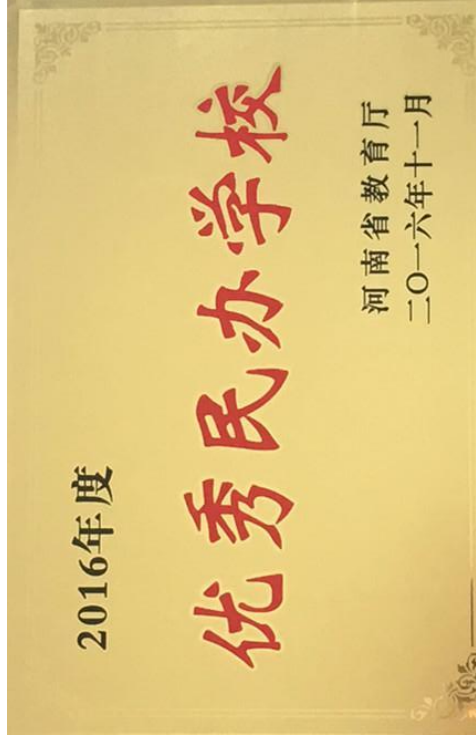 2016年度
优秀民办学校
河南省教育厅
二〇一六年十一月